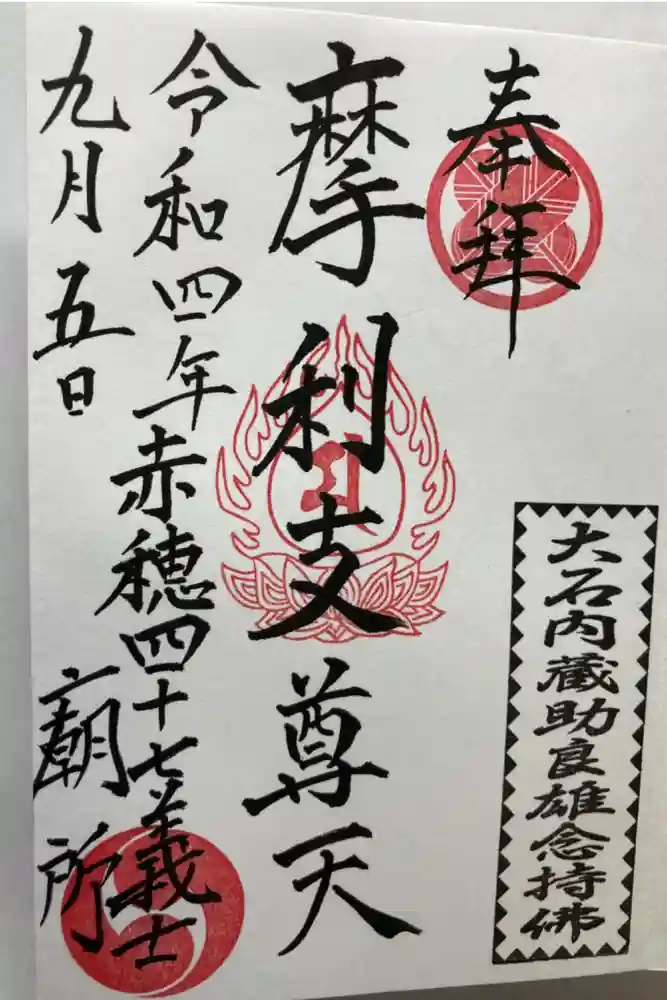 奉拝
大石内蔵助良雄念持佛
摩利支尊天
令和四年赤穂四十七義士
九月五日
廟所